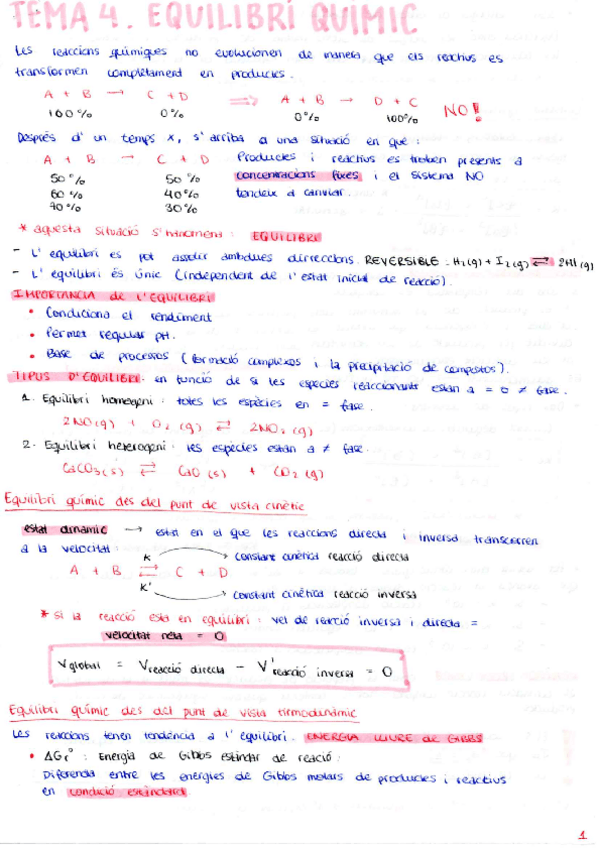 TEMA 4. EQUILIBRI QUÍMIC
Les reaccions químiques no evolucionen de manera que els reactius es
transformen completament en productes.
A + B → C + D ⇒ A + B → D + C NO!
100% 0% 0% 100%
Després d'un temps x, s'arriba a una situació en què:
A + B → C + D Productes i reactius es troben presents a
50% 50% concentracions fixes i el sistema NO
60% 40% tendeix a canviar.
70% 30%
* aquesta situació s'anomena: EQUILIBRI
- L'equilibri es pot assolir ambdues direccions. REVERSIBLE: H₂(g) + I₂(g) ⇄ 2HI(g)
- L'equilibri és únic (independent de l'estat inicial de reacció).
IMPORTÀNCIA de l'EQUILIBRI
• Condiciona el rendiment
• Permet regular pH.
• Base de processos (formació complexos i la precipitació de compostos).
TIPUS D'EQUILIBRI: en funció de si les espècies reaccionants estan a = o ≠ fase.
1. Equilibri homogeni: totes les espècies en = fase.
2NO(g) + O₂(g) ⇄ 2NO₂(g)
2. Equilibri heterogeni: les espècies estan a ≠ fase.
CaCO₃(s) ⇄ CaO(s) + CO₂(g)
Equilibri químic des del punt de vista cinètic
estat dinàmic → estat en el que les reaccions directa i inversa transcorren
a la velocitat:
K → constant cinètica reacció directa
A + B ⇄ C + D
K' → constant cinètica reacció inversa
* si la reacció esta en equilibri: vel de reacció inversa i directa =
velocitat neta = 0
Vglobal = Vreacció directa - V'reacció inversa = 0
Equilibri químic des del punt de vista termodinàmic
Les reaccions tenen tendència a l'equilibri. ENERGIA LLIURE de GIBBS
• ΔGr°: Energia de Gibbs estàndar de reacció:
Diferència entre les energies de Gibbs molars de productes i reactius
en condició estàndard
1